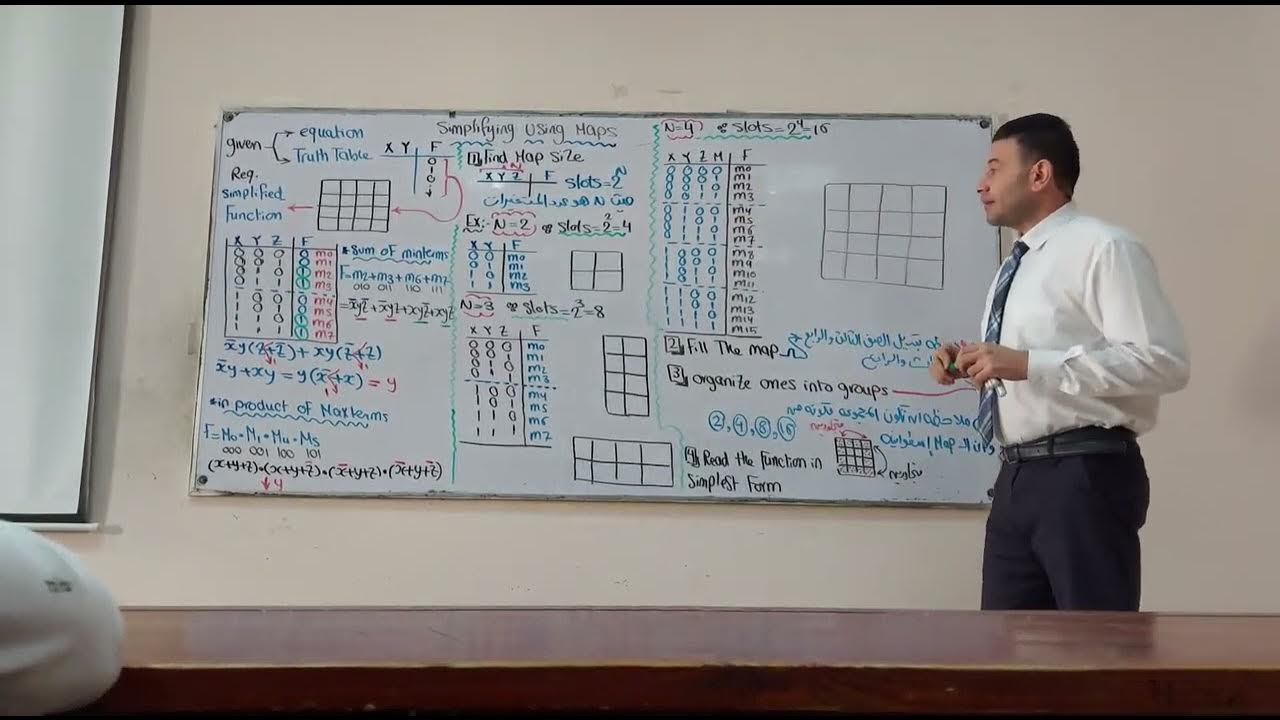 Simplifying Using Maps
given → equation
→ Truth Table
X Y F
0
1
0
Req.
simplified
Function
X Y Z F
0 0 0 0 m0
0 0 1 0 m1
0 1 0 1 m2
0 1 1 1 m3
1 0 0 0 m4
1 0 1 0 m5
1 1 0 1 m6
1 1 1 1 m7
* sum of minterms
F=m2+m3+m6+m7
010 011 110 111
=x̄yz̄+x̄yz+xyz̄+xyz
x̄y(z+z̄)+xy(z̄+z)
x̄y+xy=y(x̄+x)=y
* in product of Maxterms
F=M0·M1·M4·M5
000 001 100 101
(x+y+z)·(x+y+z̄)·(x̄+y+z)·(x̄+y+z̄)
↓y
1 Find Map Size
N
X Y Z F slots=2^N
حيث N هو عدد المتغيرات
Ex:- N=2 slots=2²=4
X Y F
0 0 m0
0 1 m1
1 0 m2
1 1 m3
N=3 slots=2³=8
X Y Z F
0 0 0 m0
0 0 1 m1
0 1 0 m2
0 1 1 m3
1 0 0 m4
1 0 1 m5
1 1 0 m6
1 1 1 m7
N=4 slots=2⁴=16
X Y Z M F
0 0 0 0 m0
0 0 0 1 m1
0 0 1 0 m2
0 0 1 1 m3
0 1 0 0 m4
0 1 0 1 m5
0 1 1 0 m6
0 1 1 1 m7
1 0 0 0 m8
1 0 0 1 m9
1 0 1 0 m10
1 0 1 1 m11
1 1 0 0 m12
1 1 0 1 m13
1 1 1 0 m14
1 1 1 1 m15
2 Fill The map
تبديل الصف الثالث والرابع
والرابع
3 organize ones into groups
2, 4, 8, 16
Map إسطوانية
4 Read the Function in
Simplest Form